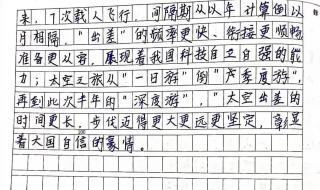 来，7次载人飞行，间隔期从以年计算倒以
月相隔，"出差"的频率更快、衔接更顺畅
准备更从容，展现着我国科技自立自强的能
力；太空之旅从"一日游"倒"产季度游"，
再到此次半年的"深度游"，"太空出差的
时间更长，步伐迈得更大更远更坚定，彰显
着大国自信的豪情。